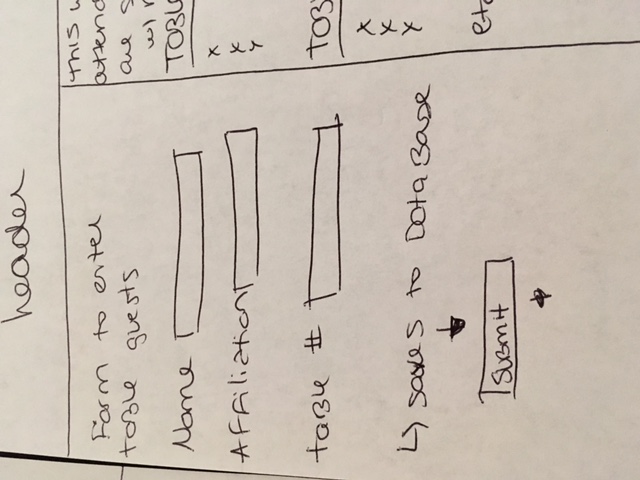 header
Form to enter
table guests
Name
Affiliation
table #
↳ saves to DataBase
Submit
this
attend
are
w/
TABLE
x
x
y
TAB
x
x
y
etc